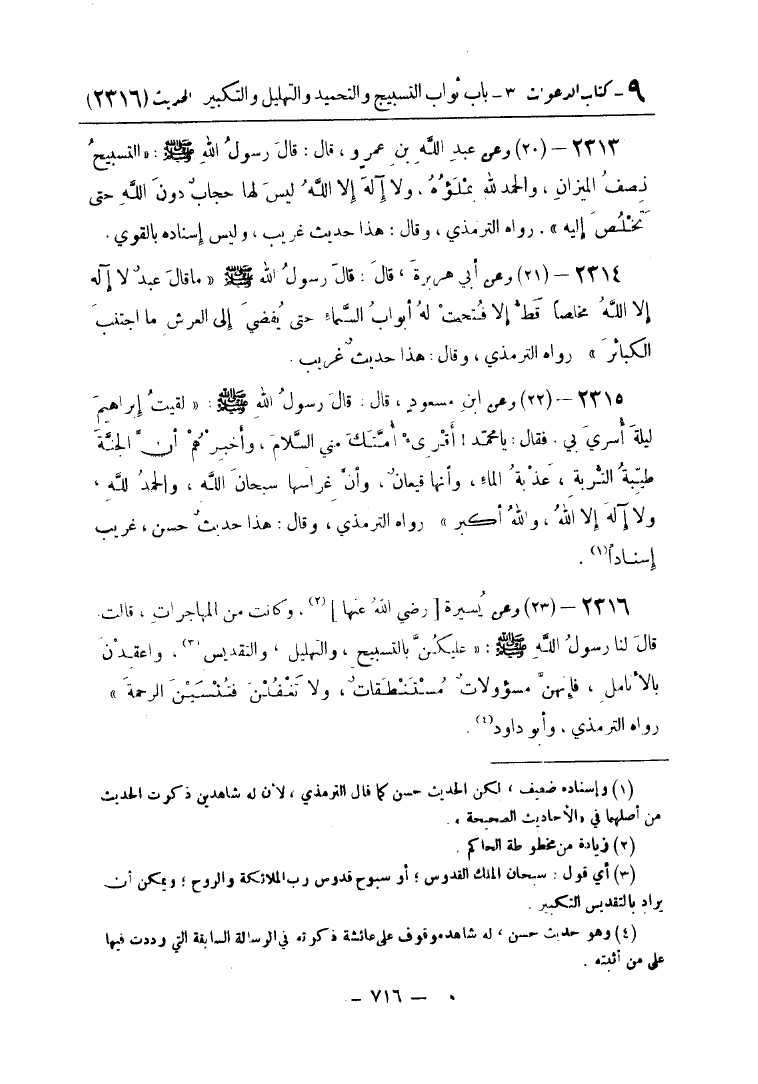 ٩ - كتاب الدعوات ٣ - باب ثواب التسبيح والتحميد والتهليل والتكبير الحديث (٢٣١٦)
٢٣١٣ - (٢٠) وعن عبدِ اللَّهِ بنِ عمرٍو ، قال : قالَ رسولُ اللهِ ﷺ : «التسبيحُ
نِصفُ الميزانِ ، والحمد لله يمْلَؤُهُ ، ولا إِلهَ إِلا اللَّهُ ليسَ لها حجابٌ دونَ اللَّهِ حتى
تخْلُصَ إليه » . رواه الترمذي ، وقال : هذا حديث غريب ، وليس إسناده بالقوي .
٢٣١٤ - (٢١) وعن أبي هريرةَ ، قالَ : قالَ رسولُ الله ﷺ « ماقالَ عبدٌ لا إِله
إِلا اللَّهُ مخلصاً قطُّ إِلا فُتحتْ لهُ أبوابُ السَّماءِ حتى يُفضيَ إلى العرشِ ما اجتنبَ
الكبائرَ » رواه الترمذي ، وقال : هذا حديثٌ غريب .
٢٣١٥ - (٢٢) وعن ابنِ مسعودٍ ، قال : قالَ رسولُ اللهِ ﷺ : « لقيتُ إبراهيمَ
ليلةَ أُسريَ بي . فقال : يامحمّد ! أَقْرِىءْ أُمَّتَكَ مني السَّلامَ ، وأخبِرْهُمْ أنَّ الجنَّةَ
طيّبةُ التُّربةِ ، عَذْبةُ الماءِ ، وأنها قيعانٌ ، وأنَّ غراسَها سبحانَ اللَّه ، والحمدُ للَّهِ ،
ولا إِلهَ إِلا اللهُ ، واللهُ أكبر » رواه الترمذي ، وقال : هذا حديثٌ حسن ، غريب
إسناداً(١) .
٢٣١٦ - (٢٣) وعن يُسيرة [ رضي اللهُ عنها ](٢) . وكانت من المهاجراتِ ، قالت
قالَ لنا رسولُ اللَّهِ ﷺ : « عليكُنَّ بالتسبيحِ ، والتهليلِ ، والتقديسِ(٣) . واعقِدْنَ
بالأناملِ ، فإنهنَّ مسؤولاتٌ مُستَنْطَقاتٌ ، ولا تَغْفُلْنَ فتُنْسَيْنَ الرحمةَ »
رواه الترمذي ، وأبو داود(٤) .
(١) وإسناده ضعيف ، لكن الحديث حسن كما قال الترمذي ، لأن له شاهدين ذكرت الحديث
من أصلهما في «الأحاديث الصحيحة » .
(٢) زيادة من مخطوطة الحاكم .
(٣) أي قول : سبحان الملك القدوس ؛ أو سبوح قدوس رب الملائكة والروح ؛ ويمكن أن
يراد بالتقديس التكبير .
(٤) وهو حديث حسن ، له شاهد موقوف على عائشة ذكرته في الرسالة السابقة التي رددت فيها
على من أثبته .
- ٧١٦ -